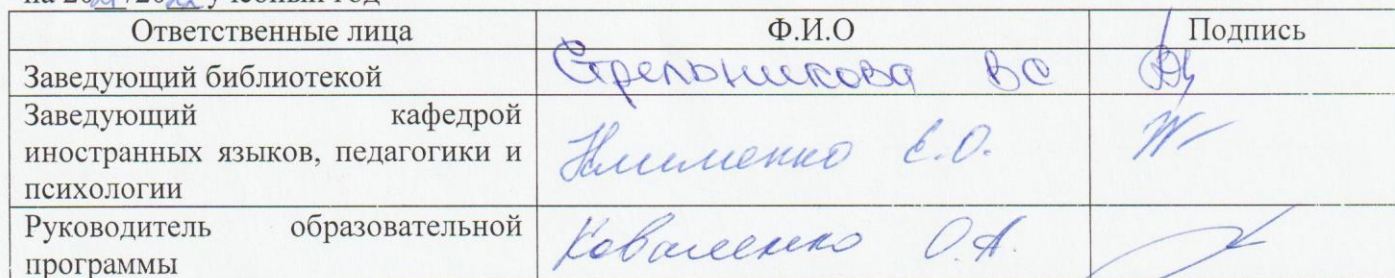 на 20 /20 учебный год
Ответственные лица Ф.И.О Подпись
Заведующий библиотекой Стрельникова ВС
Заведующий кафедрой
иностранных языков, педагогики и
психологии
Клименко Е.О.
Руководитель образовательной
программы
Коваленко О.А.